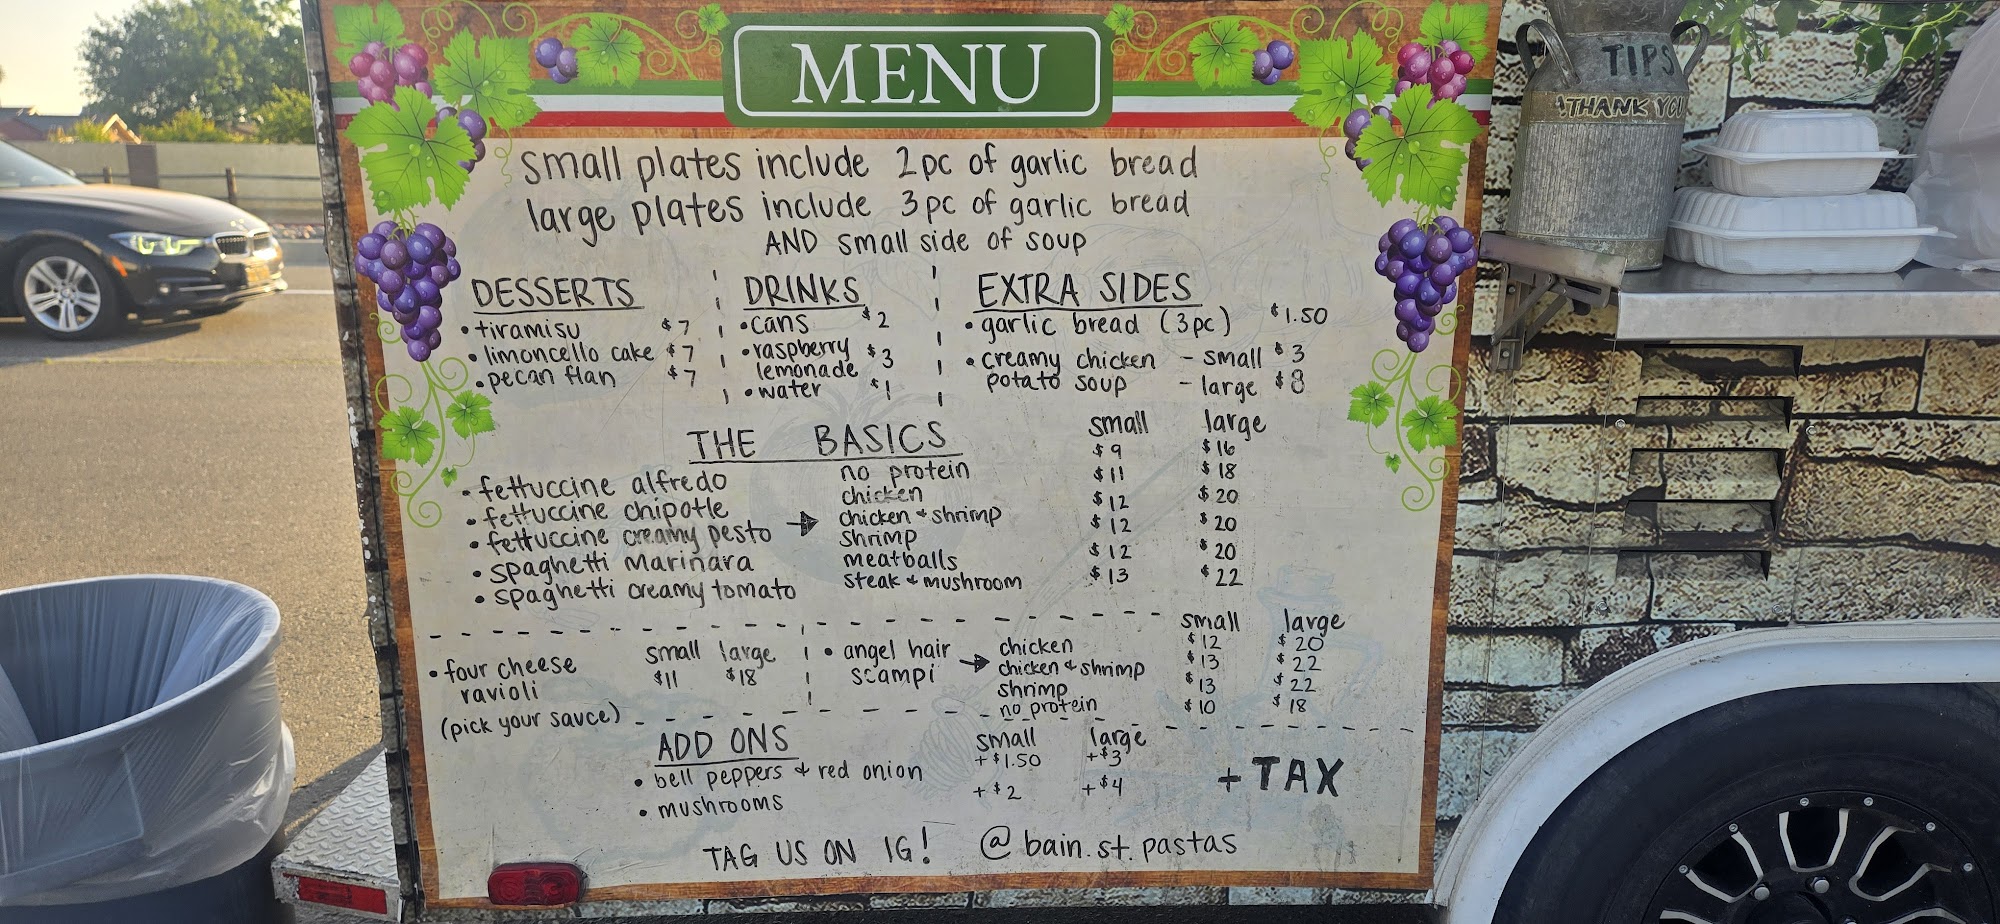 MENU
TIPS
THANK YOU
small plates include 2pc of garlic bread
large plates include 3pc of garlic bread
AND small side of soup
DESSERTS
• tiramisu $7
• limoncello cake $7
• pecan flan $7
DRINKS
• cans $2
• raspberry lemonade $3
• water $1
EXTRA SIDES
• garlic bread (3pc) $1.50
• creamy chicken potato soup - small $3
- large $8
THE BASICS
small large
• fettuccine alfredo
• fettuccine chipotle
• fettuccine creamy pesto →
• spaghetti marinara
• spaghetti creamy tomato
no protein $9 $16
chicken $11 $18
chicken + shrimp $12 $20
shrimp $12 $20
meatballs $12 $20
steak + mushroom $13 $22
small large
• four cheese ravioli $11 $18
(pick your sauce)
small large
• angel hair scampi →
chicken $12 $20
chicken + shrimp $13 $22
shrimp $13 $22
no protein $10 $18
ADD ONS
small large
• bell peppers + red onion +$1.50 +$3
• mushrooms +$2 +$4
+ TAX
TAG US ON IG! @bain.st.pastas